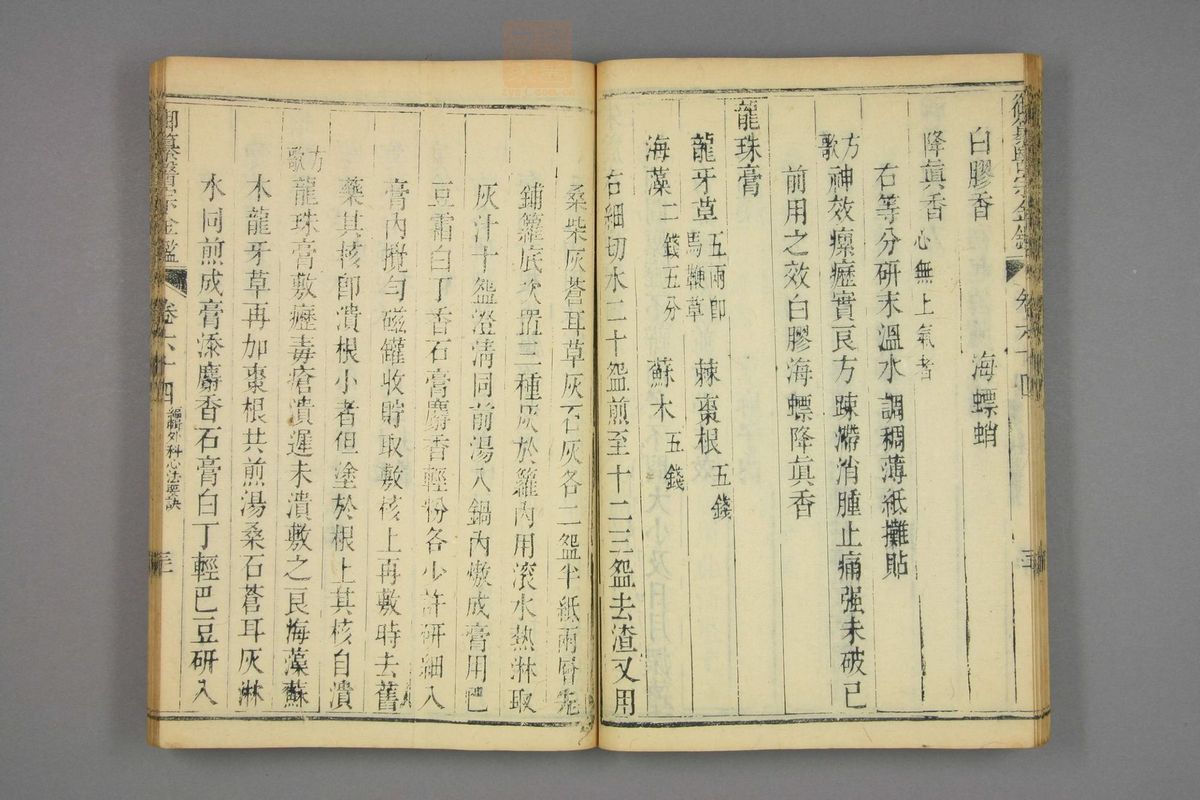 白膠香 海螵蛸
降眞香心無上氣者
右等分研末溫水調稠薄紙攤貼
方歌神效瘰癧實良方踈滯消腫止痛强未破已
前用之效白膠海螵降眞香
龍珠膏
龍牙草五兩卽馬鞭草 棘棗根五錢
海藻二錢五分 蘇木五錢
右細切水二十盌煎至十二三盌去渣又用
桑柴灰蒼耳草灰石灰各二盌半紙兩層先
鋪籮底次置三種灰於籮內用滾水熱淋取
灰汁十盌澄淸同前湯入鍋內熬成膏用巴
豆霜白丁香石膏麝香輕粉各少許硏細入
膏內攪勻磁罐收貯取敷核上再敷時去舊
藥其核卽潰根小者但塗於根上其核自潰
方歌龍珠膏敷癧毒瘡潰遲未潰敷之良海藻蘇
木龍牙草再加棗根共煎湯桑石蒼耳灰淋
水同煎成膏添麝香石膏白丁輕巴豆硏入
御纂醫宗金鑑 卷六十四 編輯外科心法要訣